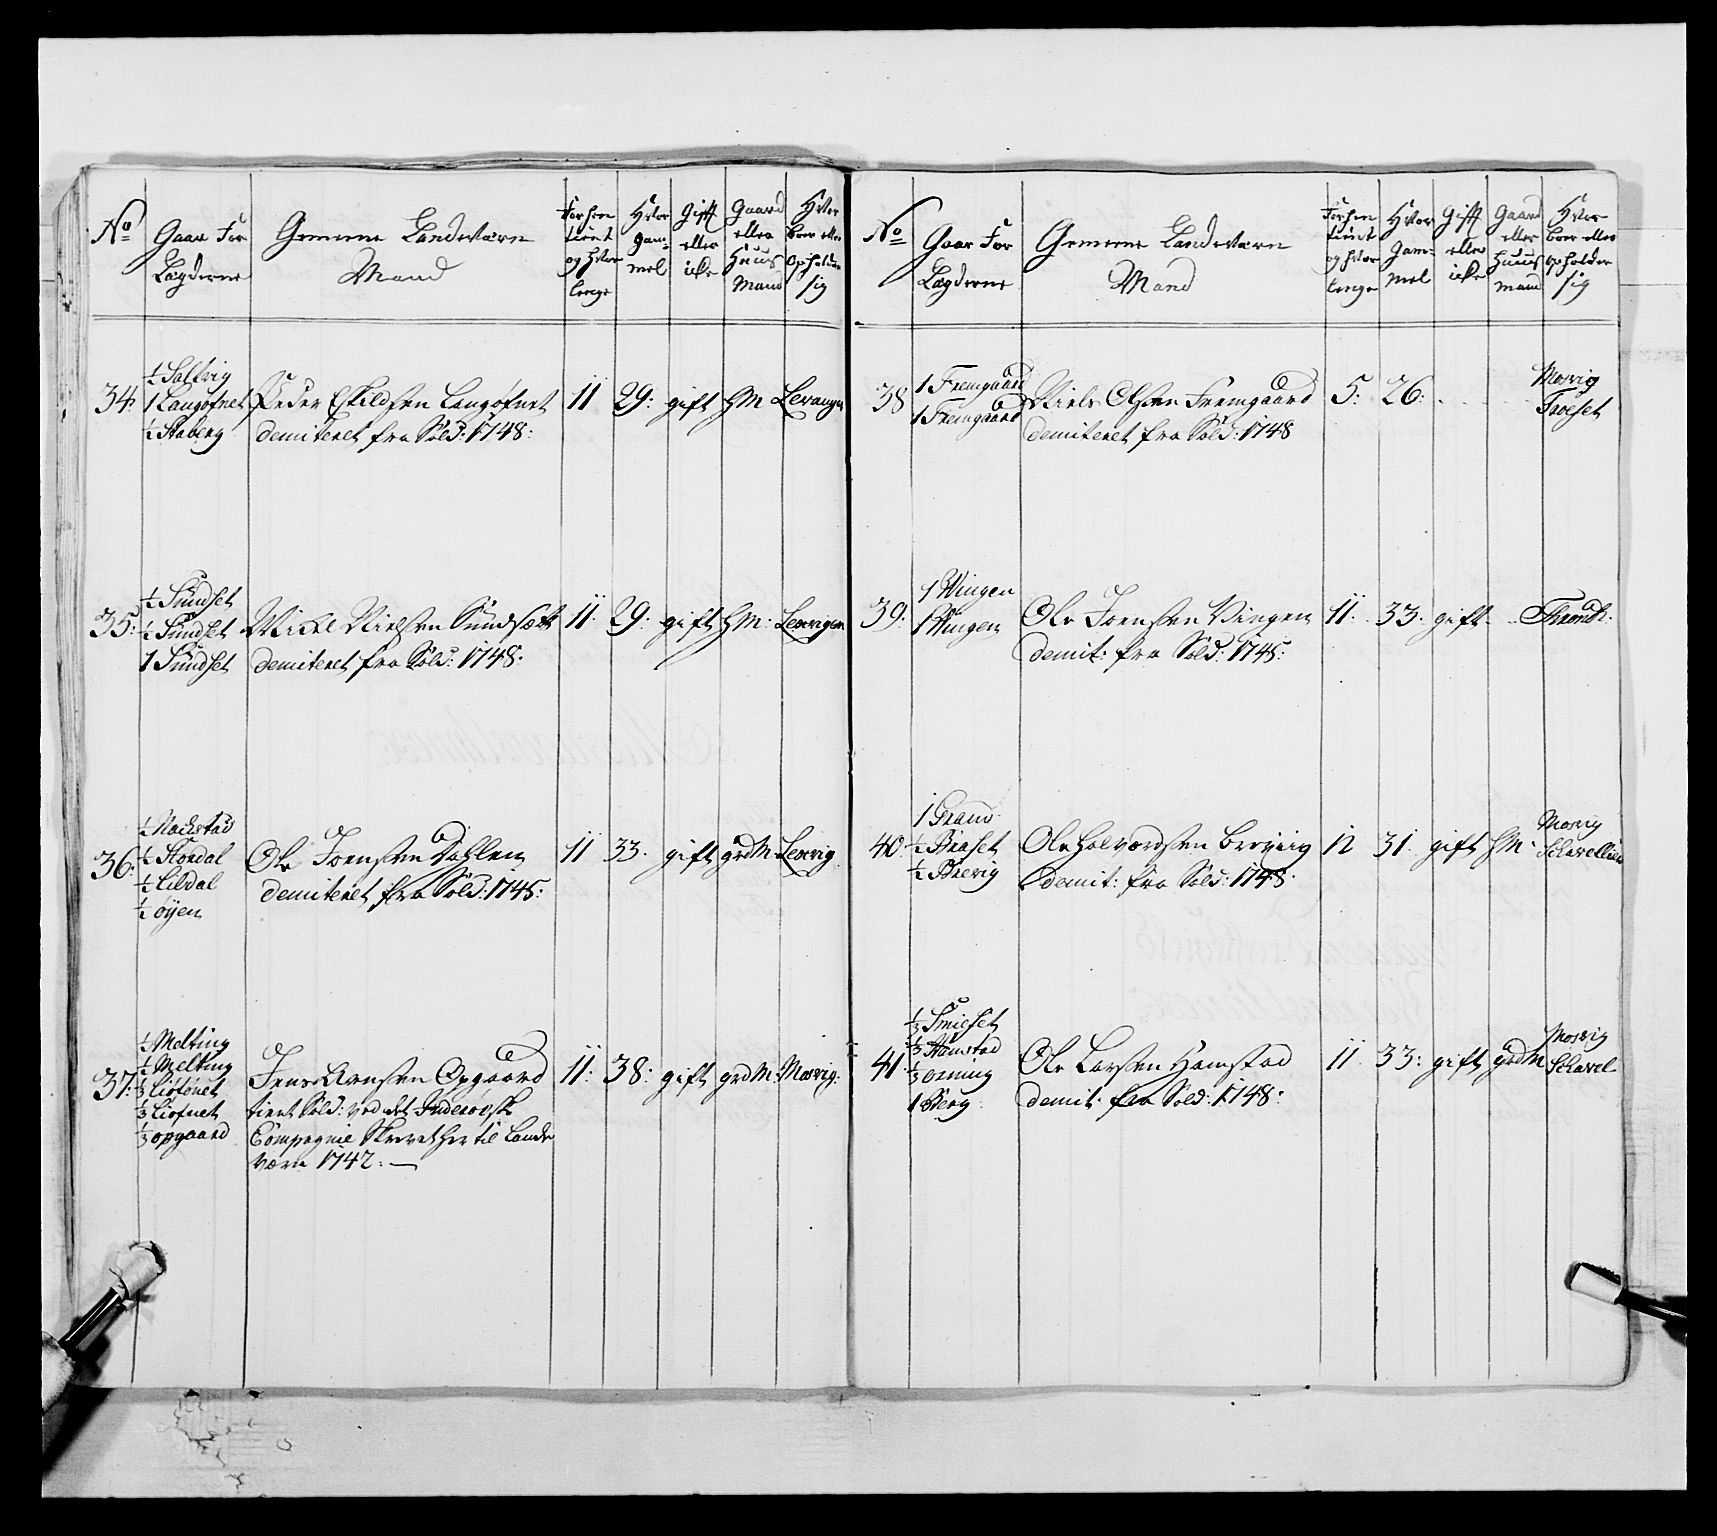 No
Gaar For
Lægderne
Gemene Landeværn
Mand
Forhen
tient
og hvor
lenge
Hvor
gam-
mel
Gift
eller
icke
Gaard
eller
Huus
Mand
Hvor
boer eller
opholder
sig
34:
½ Saltvig
1 Langøfnet
½ Staberg
Peder Eskildsen Langøfnet
demiteret fra Sold: 1748:
11 29: gift HM Levangen
35:
½ Sundset
½ Sundset
1 Sundset
Michel Nielsen Sundset
demiteret fra Sold: 1748:
11: 29: gift HM: Lexvigen
36:
½ Kockstad
½ Stordal
½ Lildal
½ Øyen
Ole Joensen Dahlen
demiteret fra Sold: 1745:
11 33. gift grdM Lexvig
37:
½ Melting
½ Melting
⅓ Liøfønet
⅓ Liøfnet
⅓ Opgaard
Jens Arensen Opgaard
tient Sold: ved det Inderøyske
Compagnie Skrevet her til Lande
værn 1742: —
11: 38: gift grdM: Mosvig:
No
Gaar For
Lægderne
Gemene Landeværn
Mand
Forhen
tient
og hvor
lenge
Hvor
gam-
mel
Gift
eller
icke
Gaard
eller
Huus
mand
Hvor
boer eller
opholder
sig
38
1 Fremgaard
1 Fremgaard
Niels Olsen Fremgaard
demiteret fra Sold: 1748
5: 26:
Mosvig
Troeset
39:
1 Wingen
1 Wingen
Ole Joensen Vingen
demit: fra Sold: 1745:
11. 33. gift. Trondh.
40
1 Grand
½ Braset
½ Brevig
Ole Halvordsen Brevig
demit: fra Sold: 1748.
12 31. gift HM.
Mosvig
Schavellien
41.
⅓ Smieset
⅓ Hamstad
⅓ Orning
1 Berg
Ole Larsen Hamstad
demit. fra Sold: 1748:
11 33: gift grdM
Mosvig
Schavel